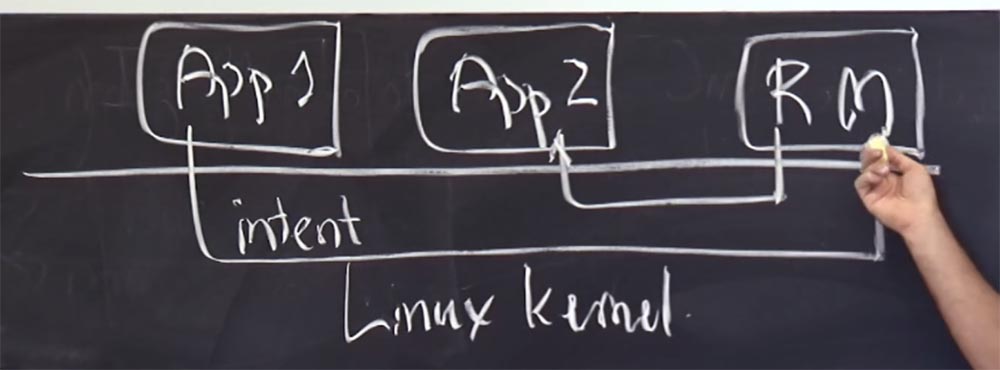 App 1 App 2 RM
intent
Linux kernel.